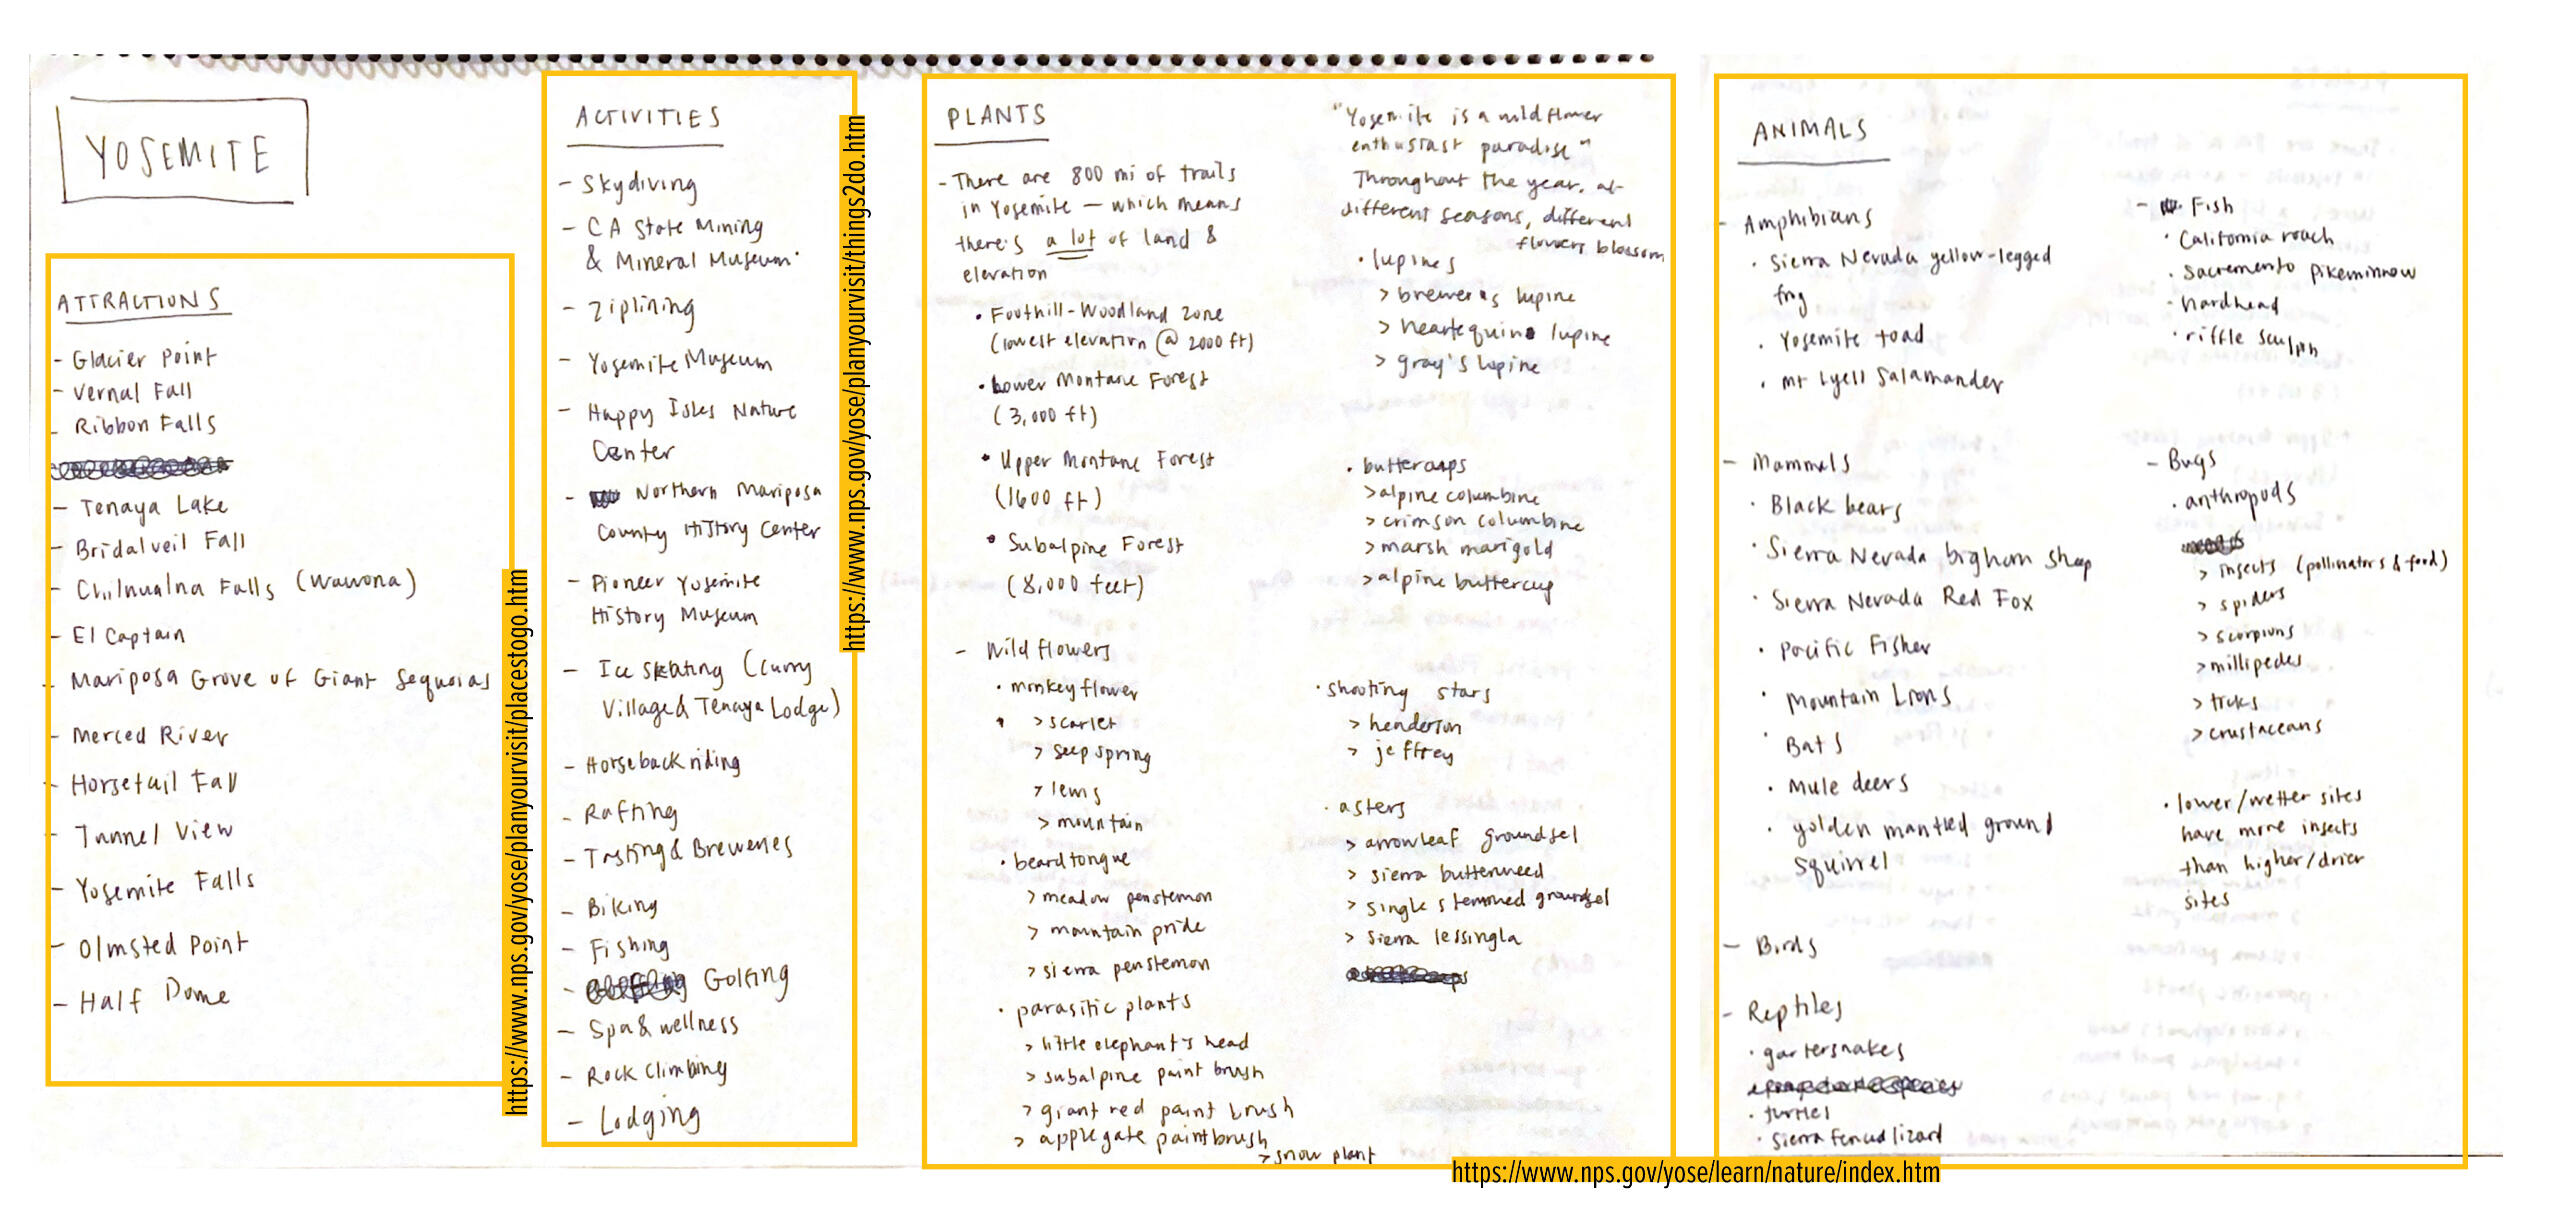 YOSEMITE
ATTRACTIONS
- Glacier Point
- Vernal Fall
- Ribbon Falls
- Tenaya Lake
- Bridalveil Fall
- Chilnualna Falls (Wawona)
- El Captain
- Mariposa Grove of Giant Sequoias
- Merced River
- Horsetail Fall
- Tunnel View
- Yosemite Falls
- Olmsted Point
- Half Dome
https://www.nps.gov/yose/planyourvisit/placestogo.htm
ACTIVITIES
- Skydiving
- CA State Mining
& Mineral Museum
- Ziplining
- Yosemite Museum
- Happy Isles Nature
Center
- Northern Mariposa
County History Center
- Pioneer Yosemite
History Museum
- Ice Skating (Curry
Village & Tenaya Lodge)
- Horseback riding
- Rafting
- Tasting & Breweries
- Biking
- Fishing
- Golfing
- Spa & wellness
- Rock Climbing
- Lodging
https://www.nps.gov/yose/planyourvisit/things2do.htm
PLANTS
- There are 800 mi of trails
in Yosemite — which means
there's a lot of land &
elevation
• Foothill-Woodland Zone
(lowest elevation @ 2000 ft)
• Lower Montane Forest
(3,000 ft)
• Upper Montane Forest
(1600 ft)
• Subalpine Forest
(8,000 feet)
- Wild flowers
• monkeyflower
> scarlet
> seep spring
> lewis
> mountain
• beardtongue
> meadow penstemon
> mountain pride
> sierra penstemon
• parasitic plants
> little elephant's head
> subalpine paint brush
> giant red paint brush
> applegate paintbrush
> snow plant
"Yosemite is a wildflower
enthusiast paradise"
Throughout the year, at
different seasons, different
flowers blossom
• lupines
> brewer's lupine
> harlequin lupine
> gray's lupine
• buttercups
> alpine columbine
> crimson columbine
> marsh marigold
> alpine buttercup
• shooting stars
> henderson
> jeffrey
• asters
> arrowleaf groundsel
> sierra butterweed
> single stemmed groundsel
> sierra lessingla
ANIMALS
- Amphibians
• Sierra Nevada yellow-legged
frog
• Yosemite toad
• Mt Lyell Salamander
- Mammals
• Black bears
• Sierra Nevada bighorn sheep
• Sierra Nevada Red Fox
• Pacific Fisher
• Mountain Lions
• Bats
• Mule deers
• golden mantled ground
squirrel
- Birds
- Reptiles
• gartersnakes
• turtles
• Sierra fenced lizard
- Fish
• California roach
• Sacramento pikeminnow
• hardhead
• riffle sculpin
- Bugs
• anthropods
> insects (pollinators & food)
> spiders
> scorpions
> millipedes
> ticks
> crustaceans
• lower/wetter sites
have more insects
than higher/drier
sites
https://www.nps.gov/yose/learn/nature/index.htm